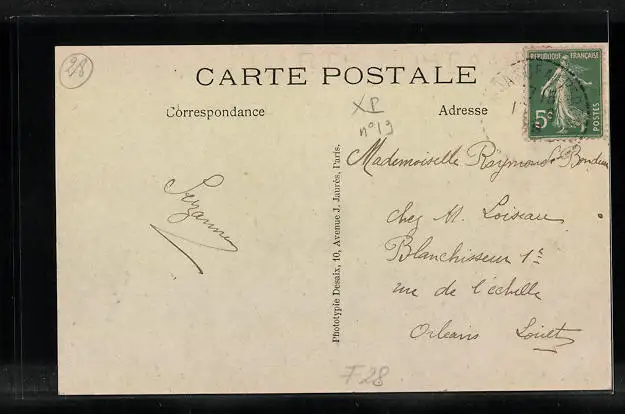 28
CARTE POSTALE
Correspondance
Adresse
XP
nº19
RÉPUBLIQUE FRANÇAISE
5c
POSTES
Mademoiselle Raymonde
chez M. Loiseau
Blanchisseur 1
rue de l'échelle
Orléans Loiret
Suzanne
Phototypie Desaix, 10, Avenue J. Jaurès, Paris.
F28